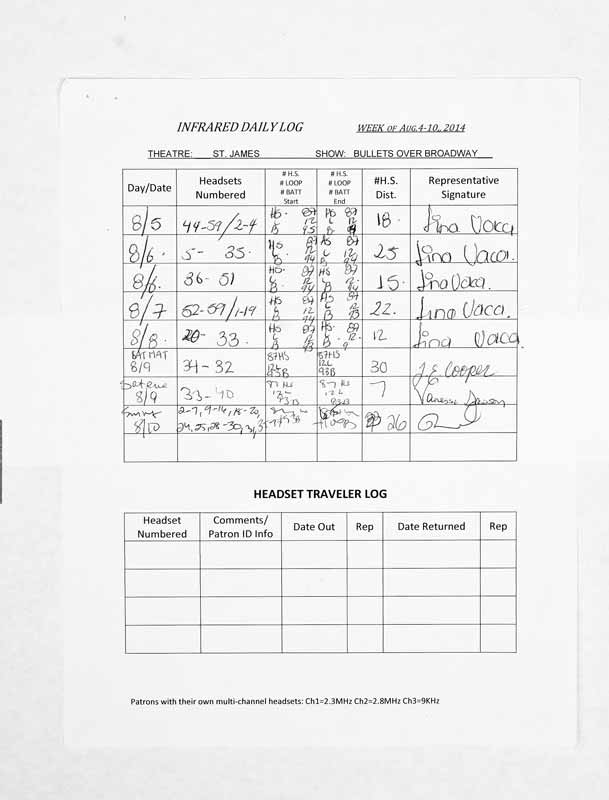 INFRARED DAILY LOG WEEK OF AUG.4-10, 2014
THEATRE: ST. JAMES SHOW: BULLETS OVER BROADWAY
Day/Date Headsets Numbered # H.S. # LOOP # BATT Start # H.S. # LOOP # BATT End #H.S. Dist. Representative Signature
8/5 44-59/2-4 HS. 87 L 12 B 95 HS 87 L 12 B 18. Lina Vacca
8/6. 5- 35. HS 87 L 12 B 94 HS 87 L 12 B 94 25 Lina Vacca.
8/6. 36- 51 HS. 87 L 12 B 94 HS 87 L 12. B 94 15. Lina Vacca.
8/7 52-59/1-19 HS 87 L 12 B 94 HS 87 L 12 B 93 22. Lina Vacca.
8/8. 20- 33. HS 87 L 12 B 93 HS. 87 L 12. B 9 12 Lina Vacca.
SAT MAT 8/9 34-32 87HS 12L 93B 87HS 12L 93B 30 J.E. Cooper
Sat eve 8/9 33-40 87 Hs 12L 93B 87 Hs 12L 93B 7 Vanessa
8/10 2-7, 9-16, 18-20, 24,25,28-30, 26
HEADSET TRAVELER LOG
Headset Numbered Comments/ Patron ID Info Date Out Rep Date Returned Rep
Patrons with their own multi-channel headsets: Ch1=2.3MHz Ch2=2.8MHz Ch3=9KHz